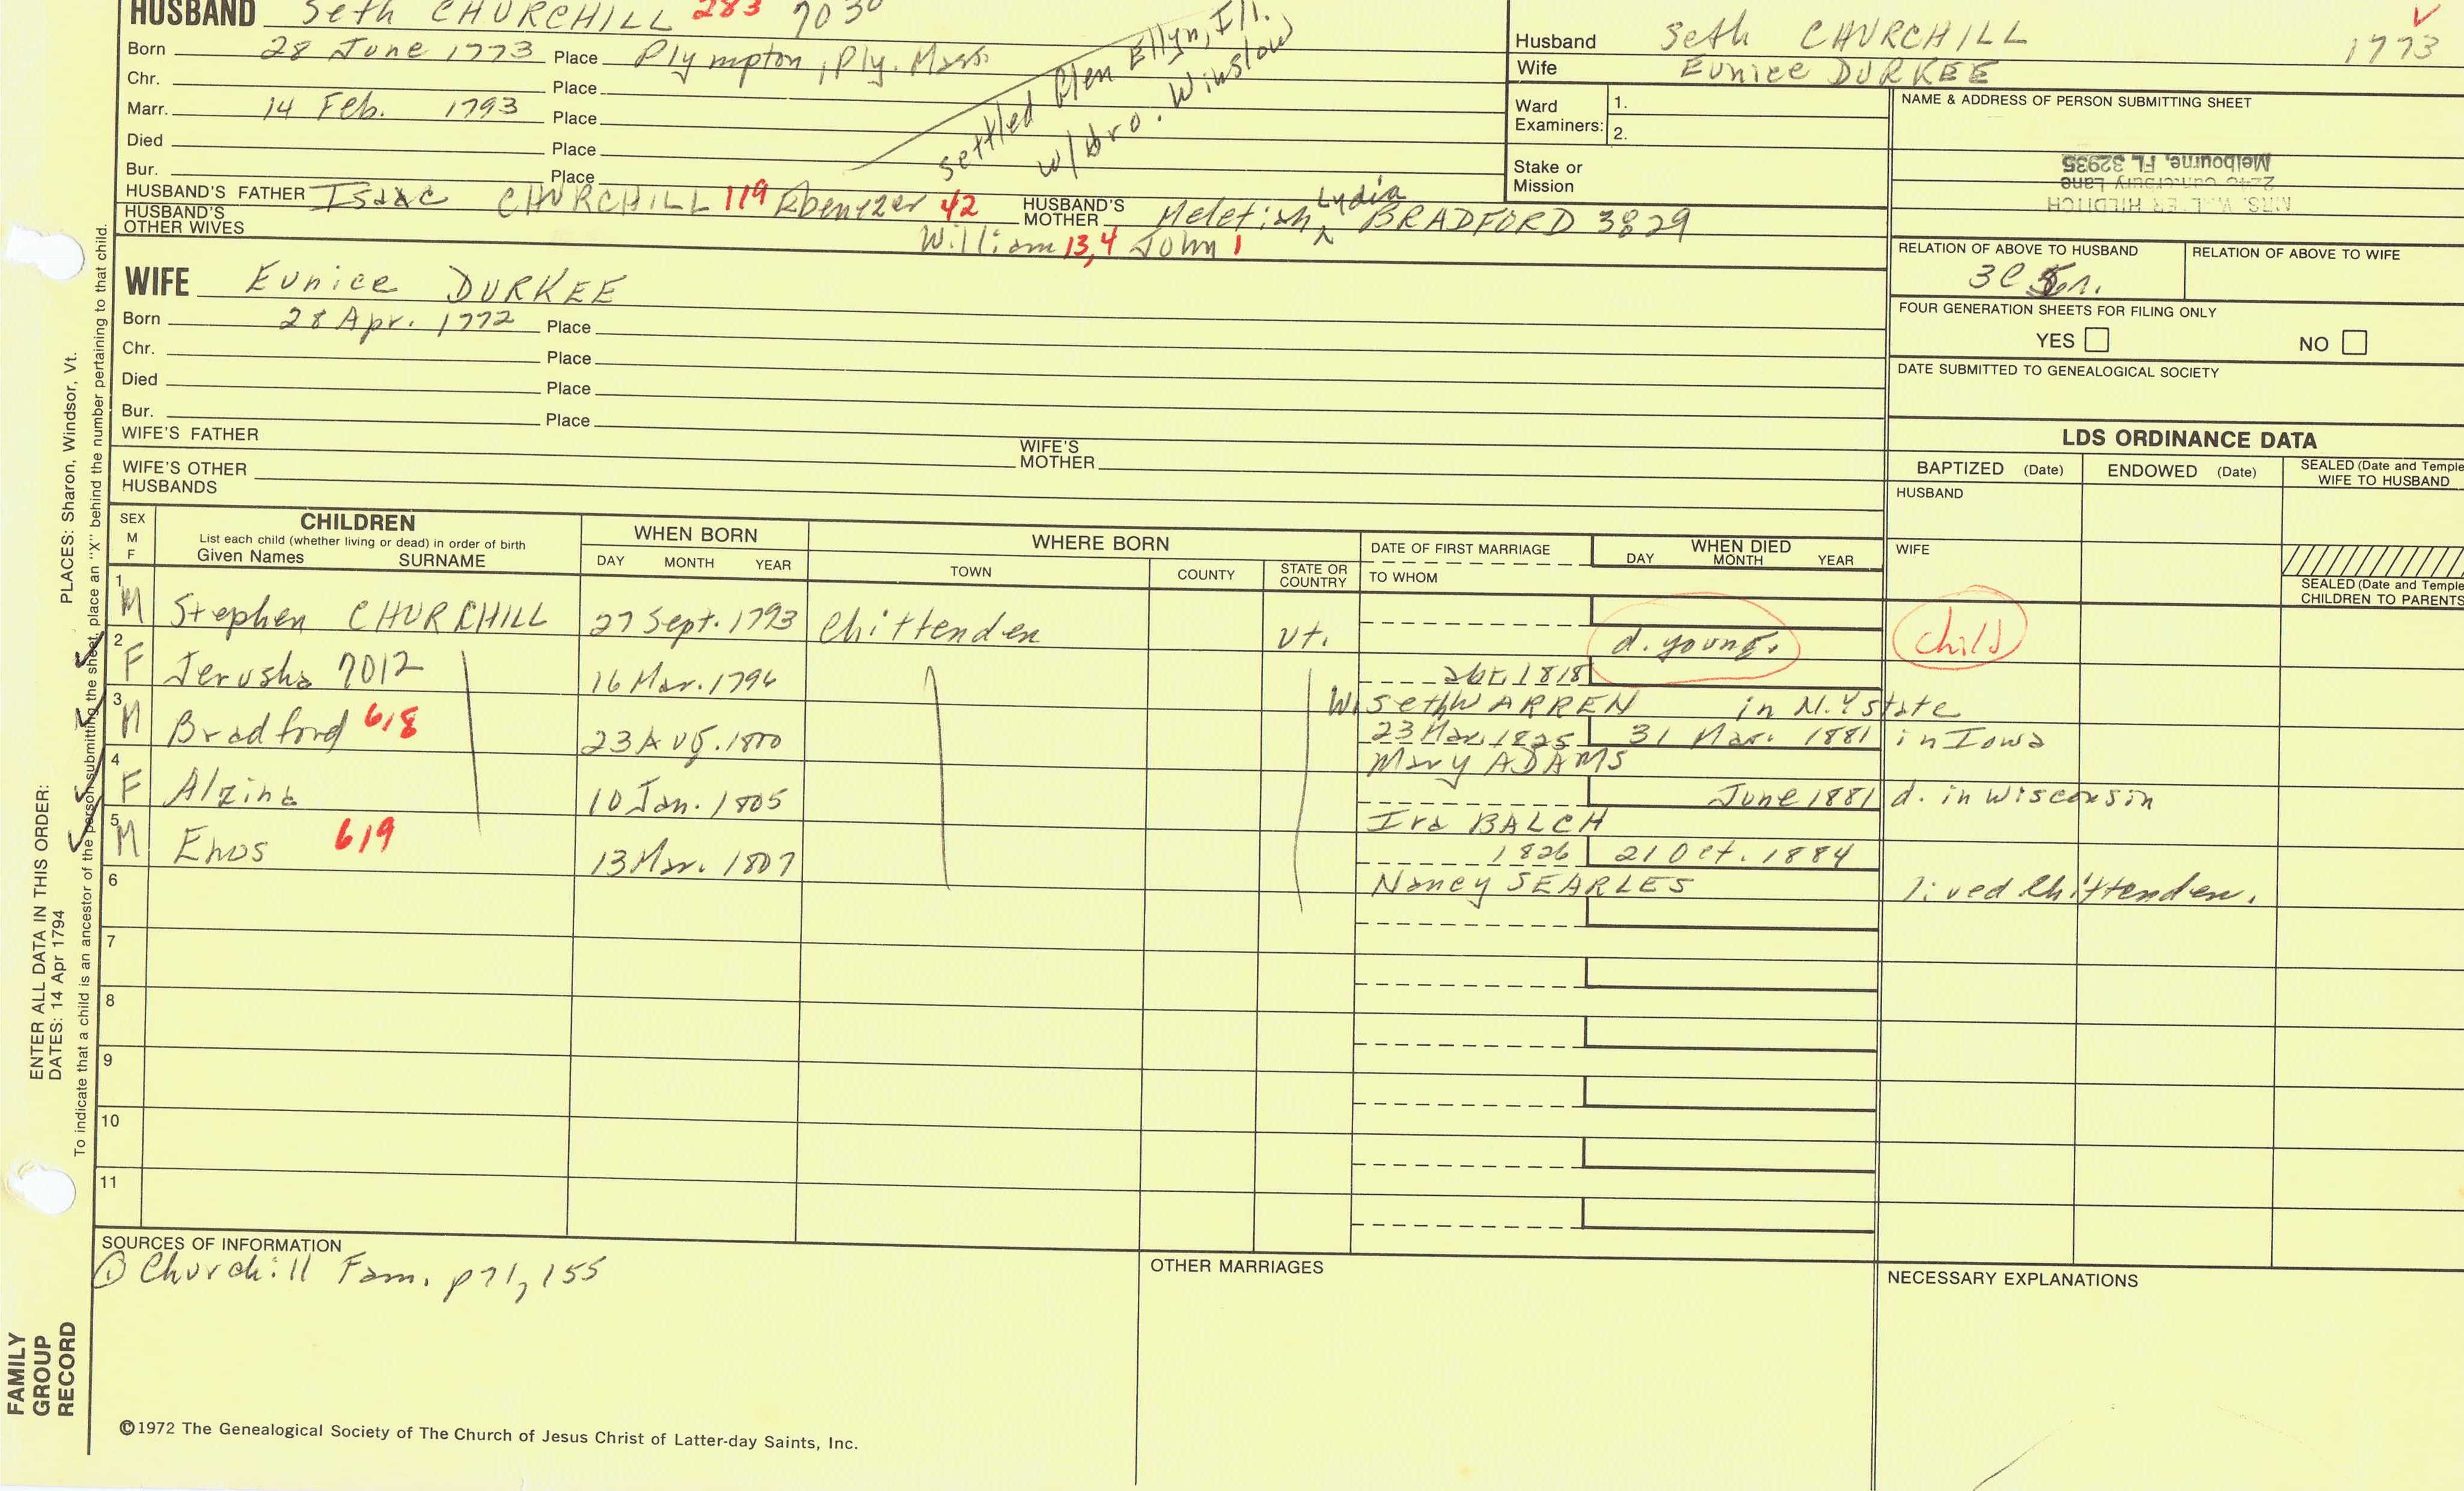 HUSBAND Seth CHURCHILL 283 7030
Born 28 June 1773 Place Plympton, Ply. Mass.
Chr. Place
Marr. 14 Feb. 1793 Place
Died Place
Bur. Place
settled Glen Ellyn, Ill.
w/bro. Winslow
HUSBAND'S FATHER Isaac CHURCHILL 119 Ebenezer 42 HUSBAND'S MOTHER Meletiah Lydia BRADFORD 3829
HUSBAND'S OTHER WIVES
William 13,4 John 1
WIFE Eunice DURKEE
Born 28 Apr. 1772 Place
Chr. Place
Died Place
Bur. Place
WIFE'S FATHER WIFE'S MOTHER
WIFE'S OTHER HUSBANDS
Husband Seth CHURCHILL 1773
Wife Eunice DURKEE
Ward Examiners: 1.
2.
Stake or Mission
NAME & ADDRESS OF PERSON SUBMITTING SHEET
MRS. HILDITCH
Lane
Melbourne, FL 32935
RELATION OF ABOVE TO HUSBAND RELATION OF ABOVE TO WIFE
3C
FOUR GENERATION SHEETS FOR FILING ONLY
YES NO
DATE SUBMITTED TO GENEALOGICAL SOCIETY
LDS ORDINANCE DATA
BAPTIZED (Date) ENDOWED (Date) SEALED (Date and Temple WIFE TO HUSBAND
HUSBAND
WIFE
SEALED (Date and Temple CHILDREN TO PARENTS
SEX M F
CHILDREN
List each child (whether living or dead) in order of birth
Given Names SURNAME
WHEN BORN
DAY MONTH YEAR
WHERE BORN
TOWN COUNTY STATE OR COUNTRY
DATE OF FIRST MARRIAGE
TO WHOM
WHEN DIED
DAY MONTH YEAR
1 M Stephen CHURCHILL 27 Sept. 1793 Chittenden Vt. d. young. child
2 F Jerusha 7012 16 Mar. 1796 abt. 1818
Seth WARREN in N.Y state
3 M Bradford 618 23 Aug. 1800 23 Mar. 1825 31 Mar. 1881 in Iowa
Mary ADAMS
4 F Alzina 10 Jan. 1805 June 1881 d. in Wisconsin
Ira BALCH
5 M Enos 619 13 Mar. 1807 1826 21 Oct. 1884
Nancy SEARLES lived Chittenden.
6
7
8
9
10
11
SOURCES OF INFORMATION
① Churchill Fam. p 71, 155
OTHER MARRIAGES
NECESSARY EXPLANATIONS
©1972 The Genealogical Society of The Church of Jesus Christ of Latter-day Saints, Inc.
FAMILY GROUP RECORD
ENTER ALL DATA IN THIS ORDER:
DATES: 14 Apr 1794 PLACES: Sharon, Windsor, Vt.
To indicate that a child is an ancestor of the person submitting the sheet, place an "X" behind the number pertaining to that child.